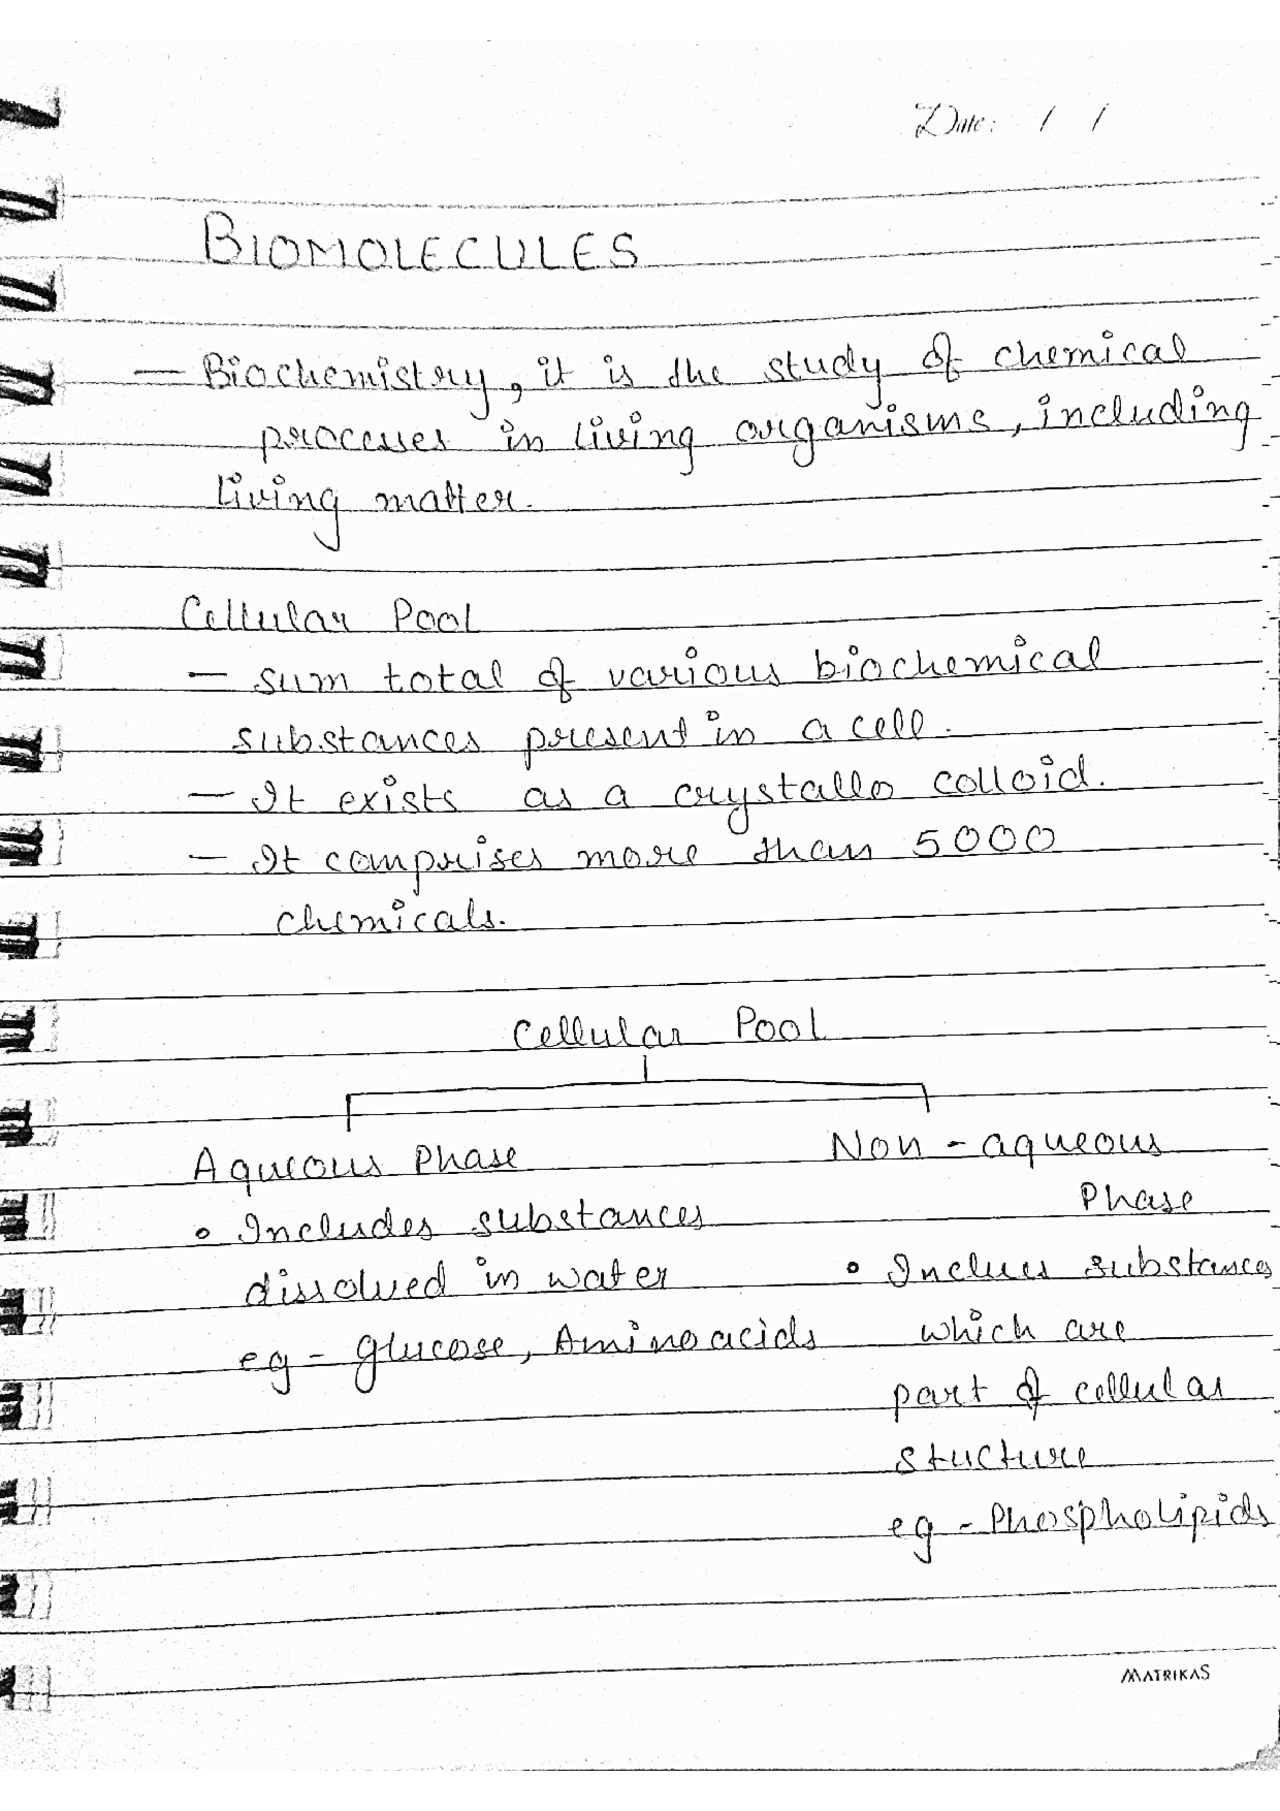 Date: / /
BIOMOLECULES
— Biochemistry, it is the study of chemical
processes in living organisms, including
living matter.
Cellular Pool
— sum total of various biochemical
substances present in a cell.
— It exists as a crystallo colloid.
— It comprises more than 5000
chemicals.
Cellular Pool
Aqueous Phase
• Includes substances
dissolved in water
eg - glucose, Amino acids
Non - aqueous
Phase
• Inclues substances
which are
part of cellular
stucture
eg - Phospholipids
MATRIKAS